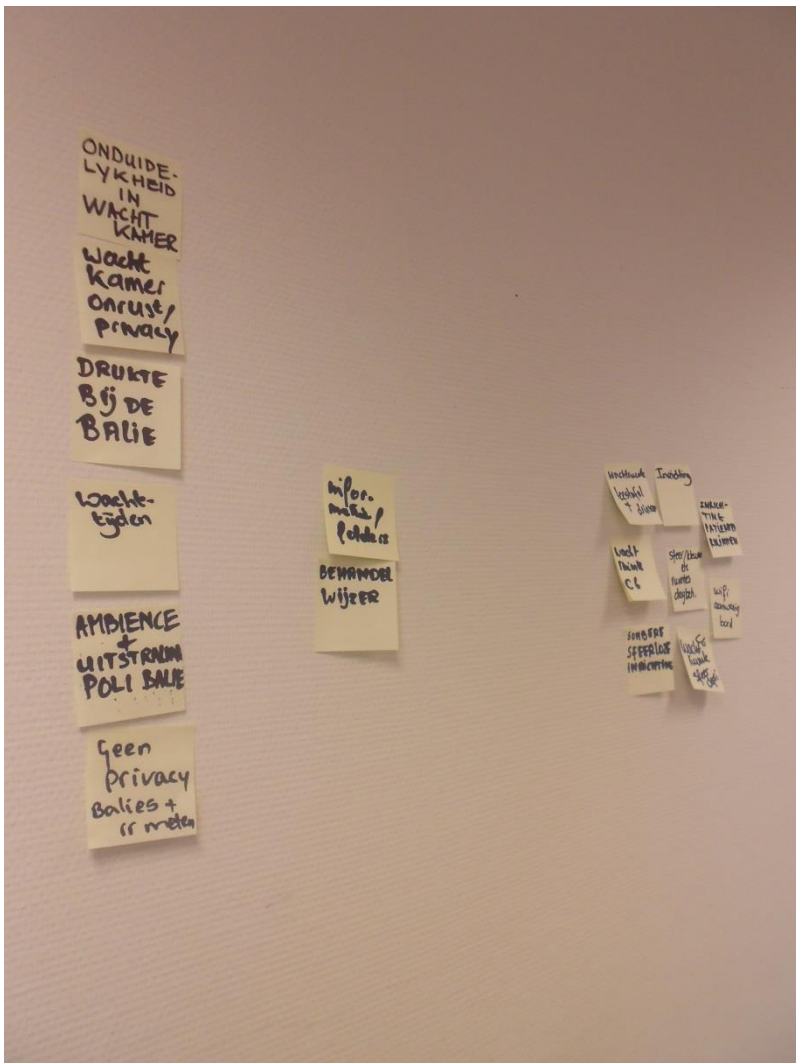 ONDUIDE-
LYKHEID
IN
WACHT
KAMER
Wacht
Kamer
onrust/
privacy
DRUKTE
Bij DE
BALIE
Wacht-
tijden
AMBIENCE
+
UITSTRALING
POLI BALIE
Geen
privacy
Balies +
rr meten
infor-
matie/
folders
BEHANDEL
WijzER
Inrichting
INRICH-
TING
PATIENTEN
Wacht
ruimte
C6
sfeer/kleur
de
ruimtes
dagbeh.
wifi
aanwezig
bord
SOMBERE
SFEERLOZE
INRICHTING
sfeer